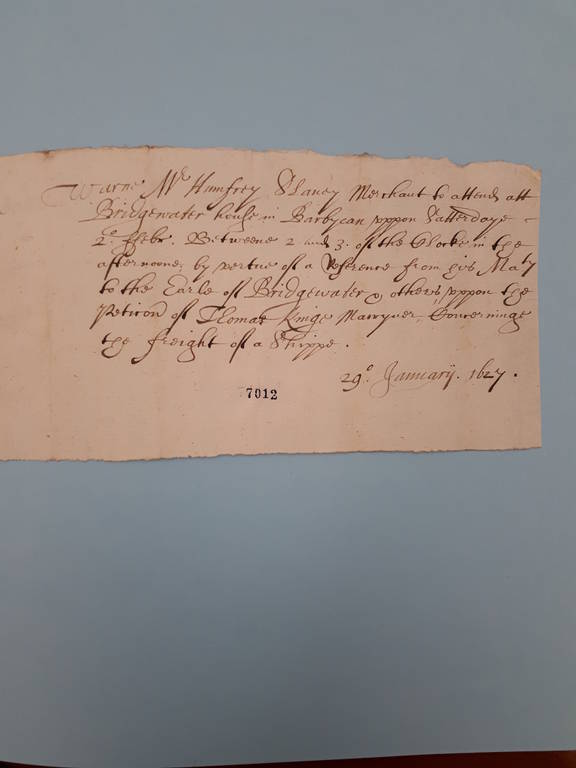 Warne Mr Humfrey Slaney Merchant to attend att
Bridgewater house in Barbycan vppon Satterdaye
2o. Febr. Betweene 2 and 3. of the Clocke in the
afternoone, by vertue of a Reference from his Maty
to the Earle of Bridgewater & others, vppon the
Peticon of Thomas Kinge Marryner, Concerninge
the freight of a Shippe.
29o. January. 1627.
7012